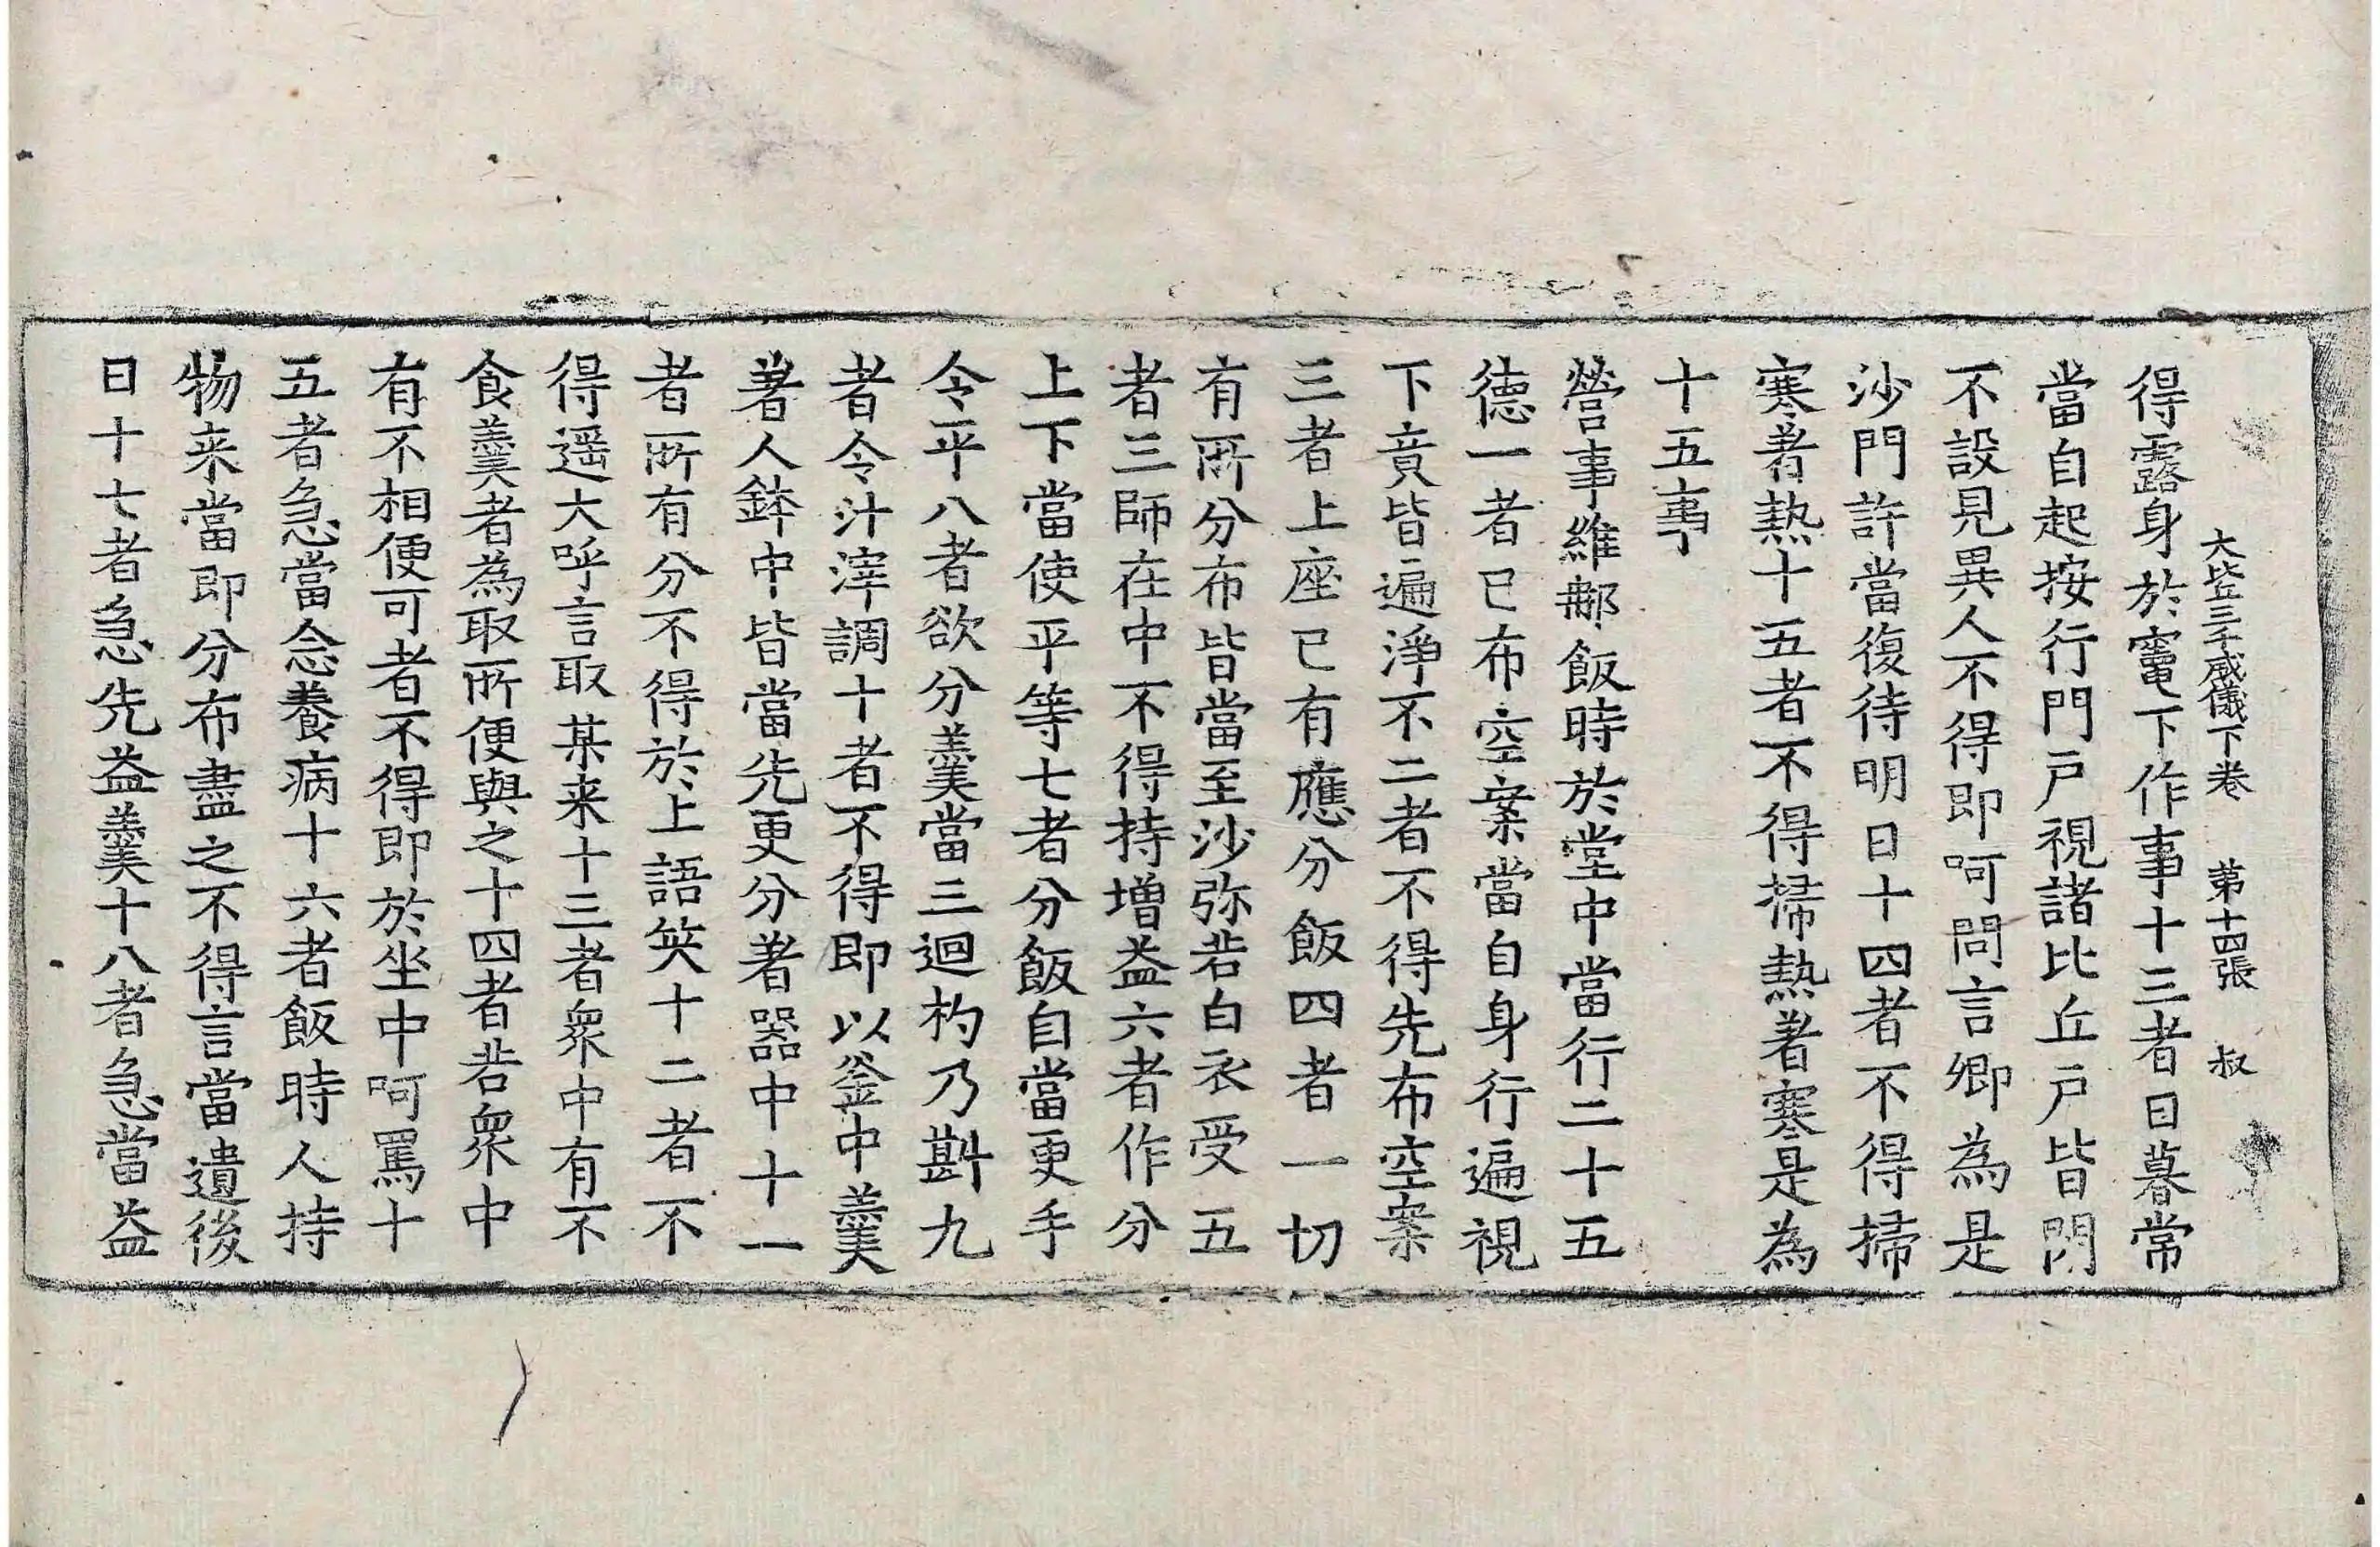 大比丘三千威儀下卷 第十四張 叔
得露身於竃下作事十三者日暮常
當自起按行門戶視諸比丘戶皆閇
不設見異人不得即呵問言卿為是
沙門許當復待明日十四者不得掃
寒著熱十五者不得掃熱著寒是為
十五事
營事維那飯時於堂中當行二十五
德一者已布空案當自身行遍視
下音皆遍淨不二者不得先布空案
三者上座已有應分飯四者一切
有所分布皆當至沙弥若白衣受五
者三師在中不得持增益六者作分
上下當使平等七者分飯自當更手
令平八者欲分羹當三迴杓乃斟九
者令汁滓調十者不得即以釜中羹
著人鉢中皆當先更分著器中十一
者所有分不得於上語笑十二者不
得遥大呼言取某来十三者衆中有不
食羹者為取所便與之十四者若衆中
有不相便可者不得即於坐中呵罵十
五者急當念養病十六者飯時人持
物来當即分布盡之不得言當遺後
日十七者急先益羹十八者急當益